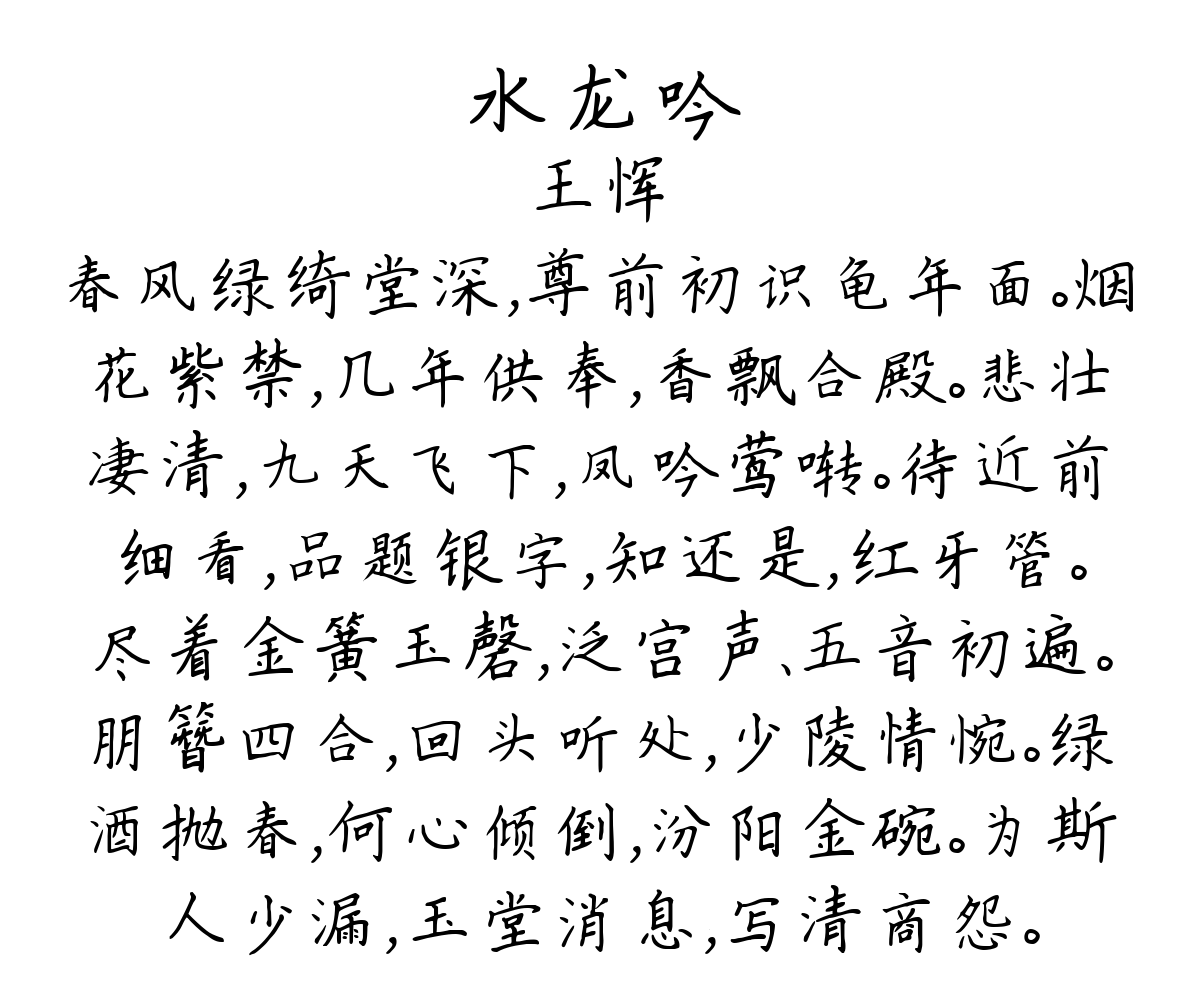 水龙吟
王恽
春风绿绮堂深,尊前初识龟年面。烟
花紫禁,几年供奉,香飘合殿。悲壮
凄清,九天飞下,凤吟莺啭。待近前
细看,品题银字,知还是,红牙管。
尽着金簧玉磬,泛宫声、五音初遍。
朋簪四合,回头听处,少陵情惋。绿
酒抛春,何心倾倒,汾阳金碗。为斯
人少漏,玉堂消息,写清商怨。